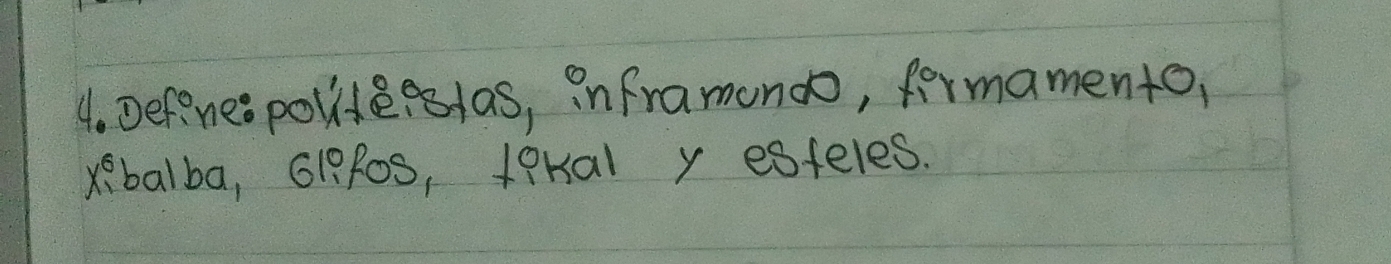 4. Define: politeistas, inframundo, firmamento,
xibalba, Glifos, tikal y esteles.